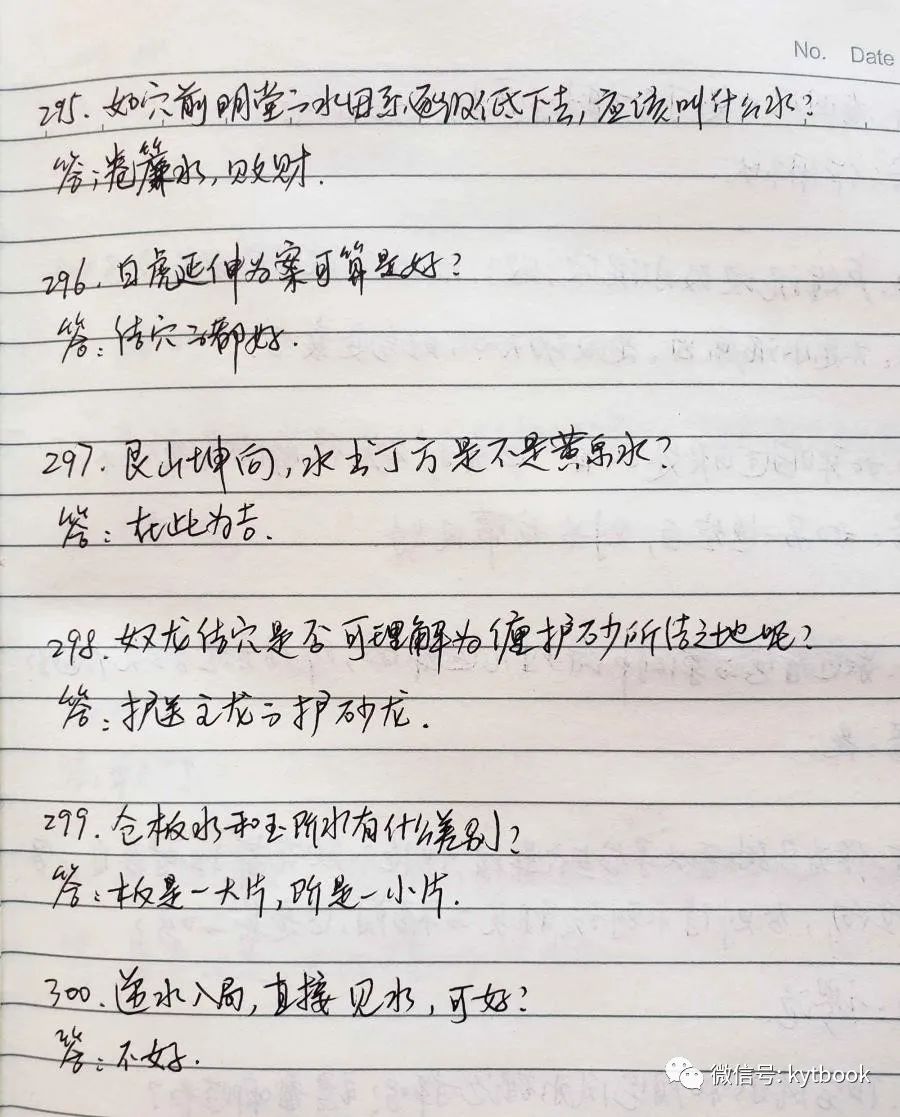 No. Date
295. 如穴前明堂之水田系逐级低下去,应该叫什么水?
答:卷簾水,败财.
296. 白虎延伸为案可算是好?
答:结穴之都好.
297. 艮山坤向,水出丁方是不是黄泉水?
答:在此为吉.
298. 奴龙结穴是否可理解为缠护砂所结之地呢?
答:护送主龙之护砂龙.
299. 仓板水和玉阶水有什么差别?
答:板是一大片,阶是一小片.
300. 逆水入局,直接见水,可好?
答:不好.
微信号: kytbook